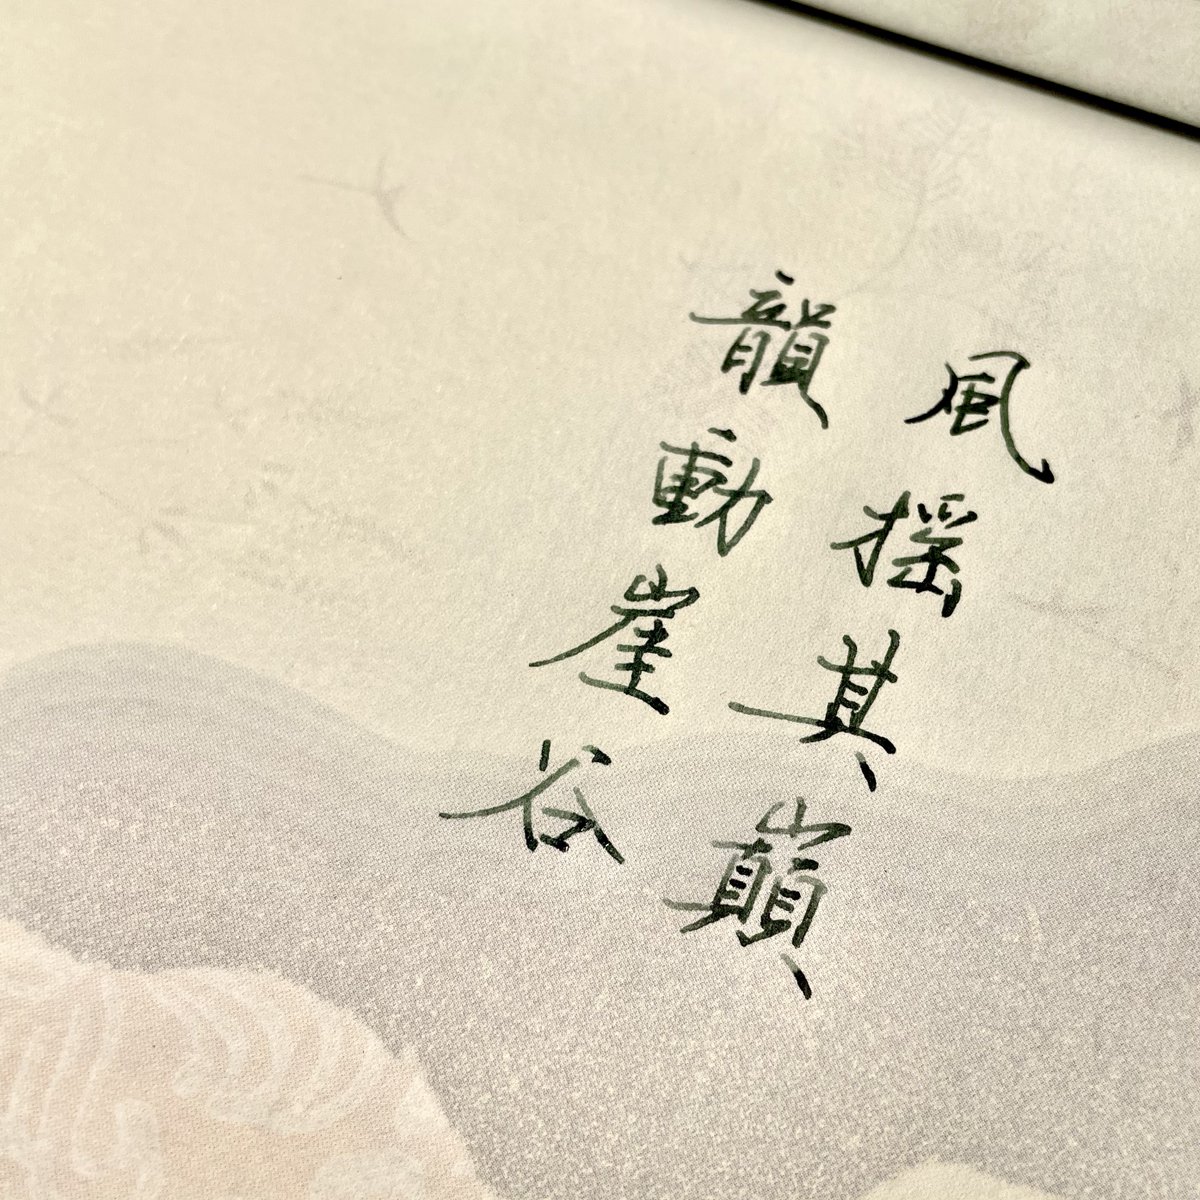 風搖其巔
韻動崖谷